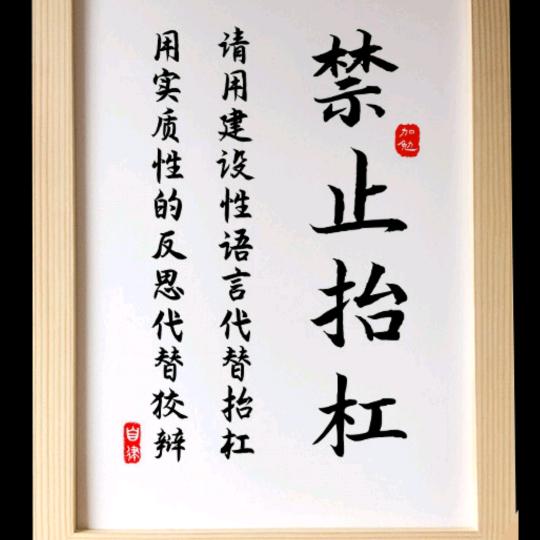 禁止抬杠
加勉
请用建设性语言代替抬杠
用实质性的反思代替狡辩
自律